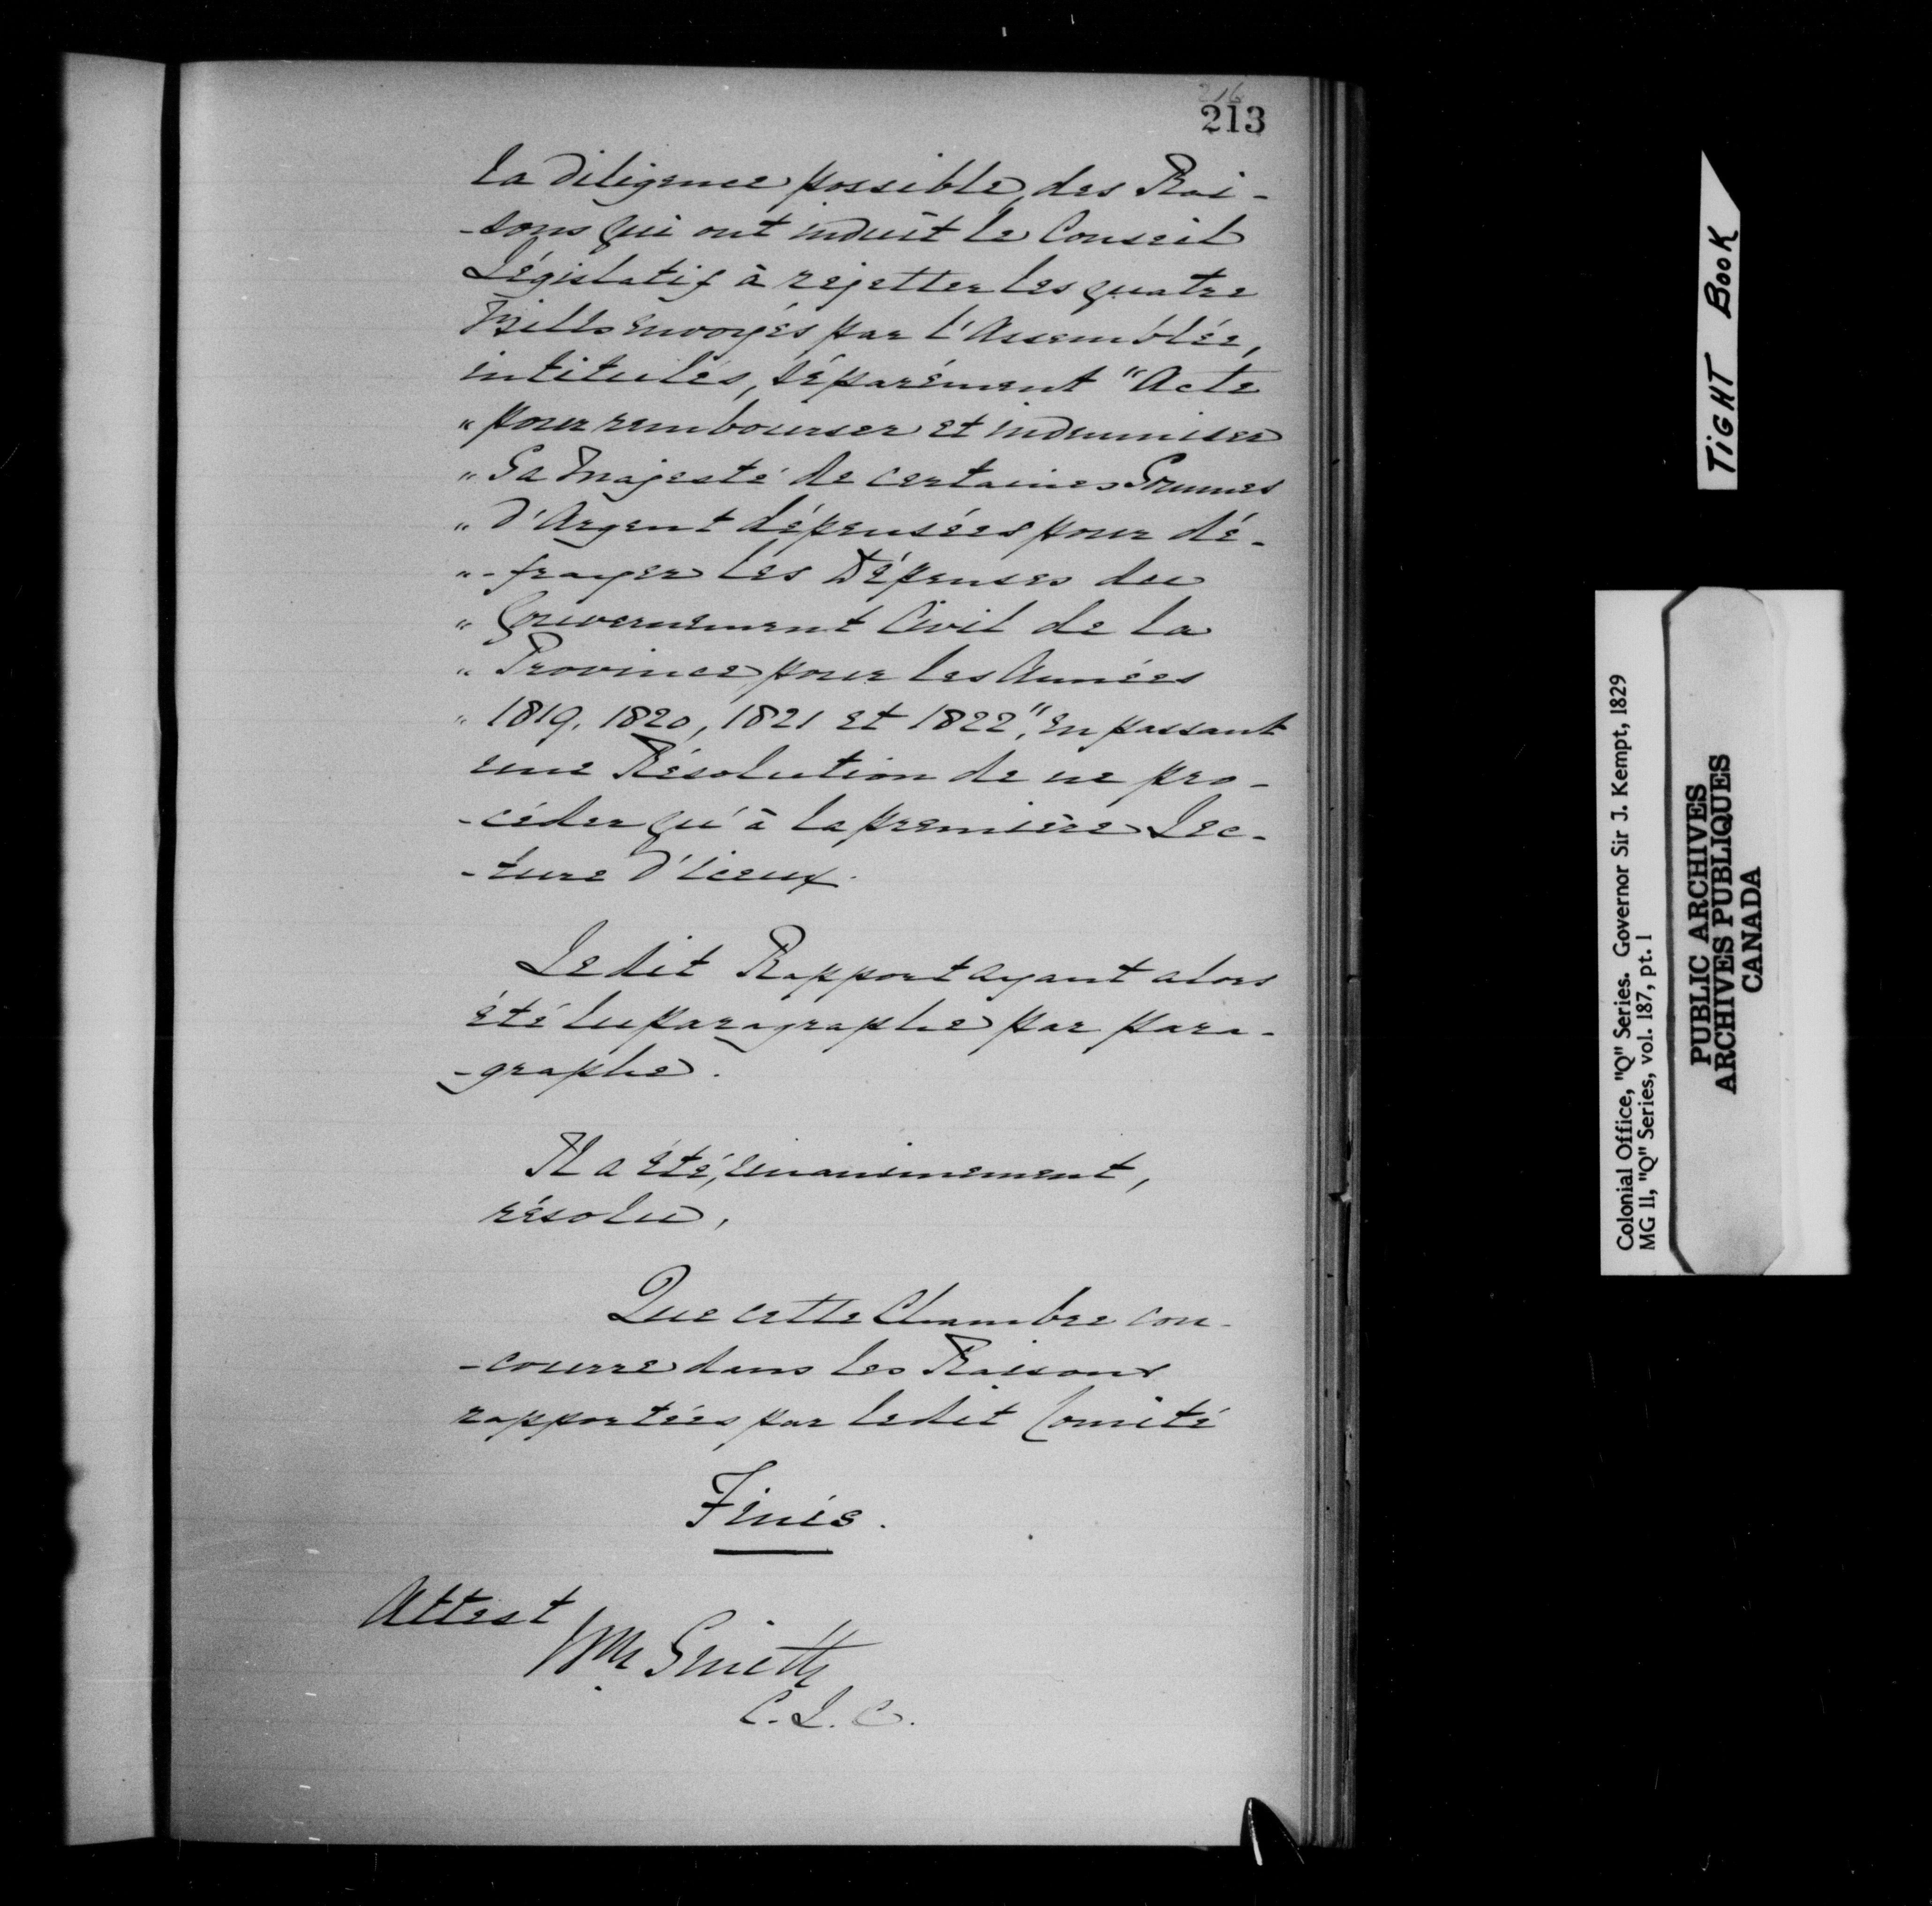 216
213
la diligence possible, des Rai-
-sons qui ont induit le Conseil
Législatif à rejetter les quatre
Bills envoyés par l'Assemblée,
intitulés, séparément "Acte
" pour rembourser et indemniser
" Sa Majesté de certaines Sommes
" d'Argent dépensées pour dé-
" -frayer les Dépenses du
" Gouvernement Civil de la
" Province pour les Années
" 1819, 1820, 1821 et 1822", en passant
une Résolution de ne pro-
-céder qu'à la première Lec-
-ture d'iceux.
Ledit Rapport ayant alors
été lu paragraphe par para-
-graphe.
Il a été, unanimement,
résolu,
Que cette Chambre con-
-courre dans les Raisons
rapportées par ledit Comité
Finis.
Attest
Wm Smith
C. L. C.
TIGHT BOOK
Colonial Office, "Q" Series. Governor Sir J. Kempt, 1829
MG 11, "Q" Series, vol. 187, pt. 1
PUBLIC ARCHIVES
ARCHIVES PUBLIQUES
CANADA